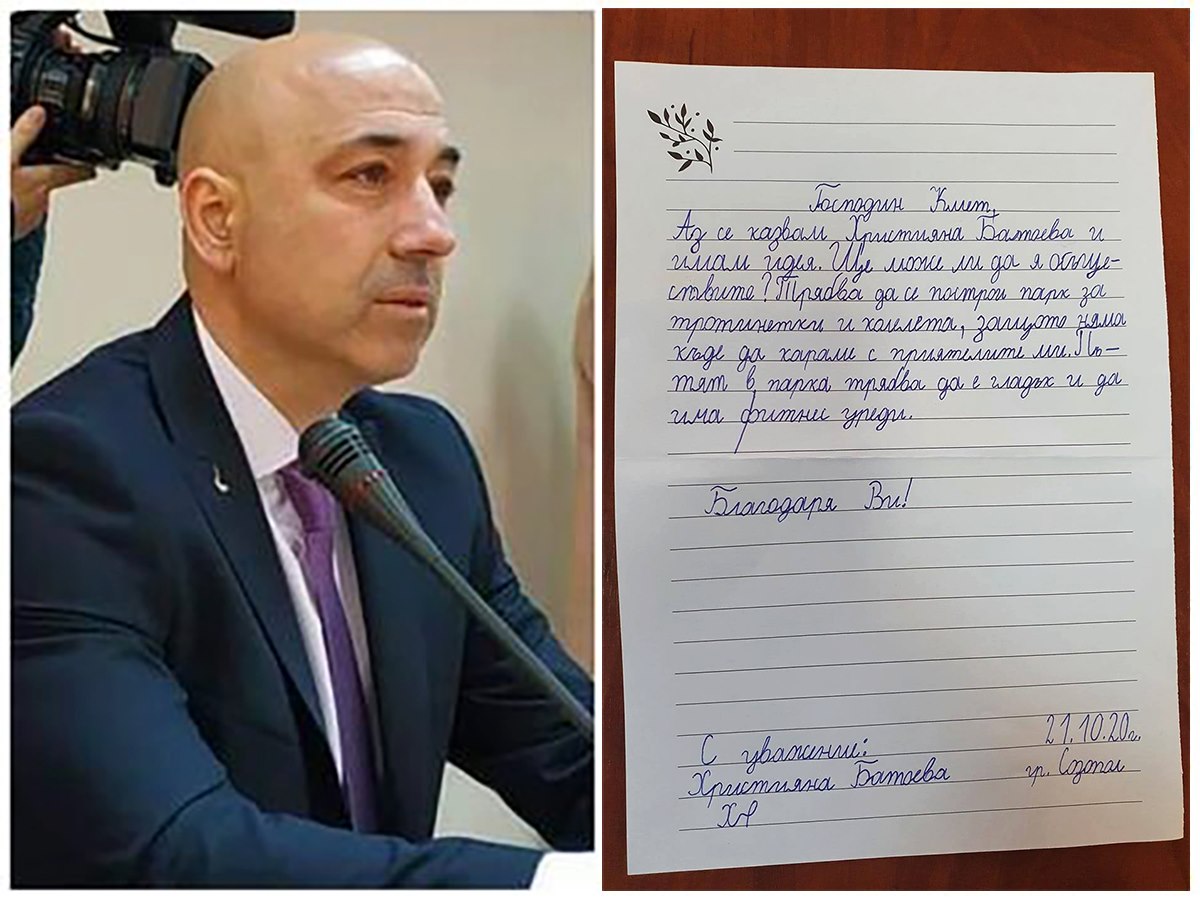 Господин Кмет,
Аз се казвам Християна Батоева и
имам идея. Ще може ли да я объще-
ствите? Трябва да се построи парк за
тротинетки и колелета, защото няма
къде да караме с приятелите ми. Пъ-
тят в парка трябва да е гладък и да
има фитнес уреди.
Благодаря Ви!
С уважение: 21.10.20г.
Християна Батоева гр. Созопол
Хр